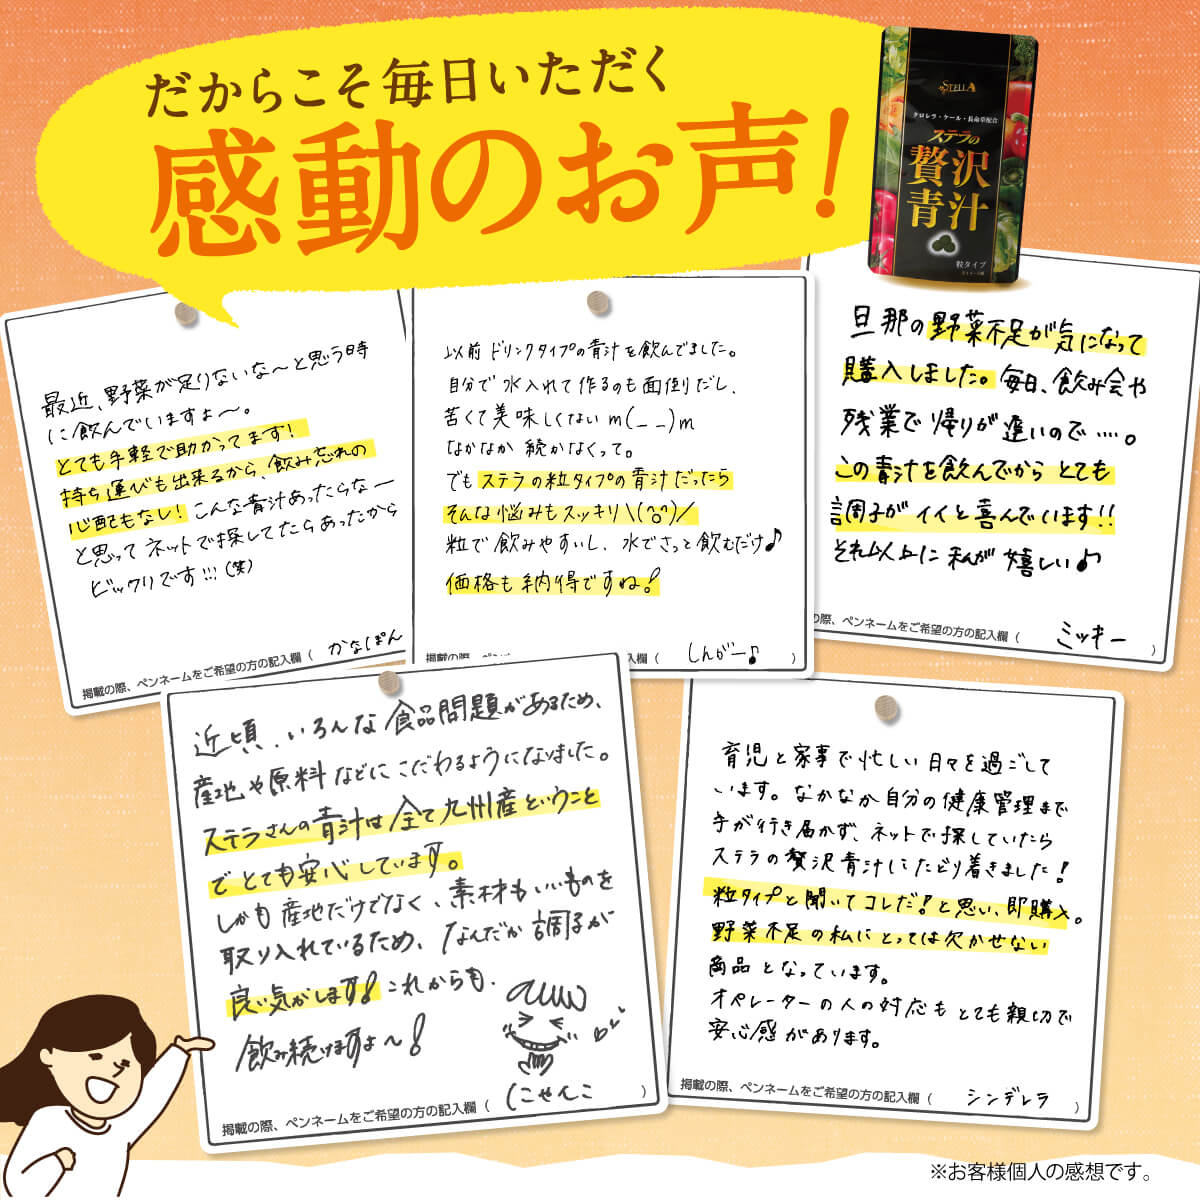 だからこそ毎日いただく
感動のお声!
STELLA
クロレラ・ケール・長命草配合
ステラの
贅沢
青汁
粒タイプ
最近、野菜が足りないな〜と思う時
に飲んでいますよ〜。
とても手軽で助かってます!
持ち運びも出来るから、飲み忘れの
心配もなし! こんな青汁あったらなー
と思って ネットで探してたらあったから
ビックリです!!!(笑)
掲載の際、ペンネームをご希望の方の記入欄( かなぽん
以前 ドリンクタイプの青汁を飲んでました。
自分で 水入れて 作るのも 面倒だし、
苦くて 美味しくない m(_ _)m
なかなか 続かなくって。
でも ステラの粒タイプの青汁だったら
そんな悩みもスッキリ\(^o^)/
粒で 飲みやすいし、水でさっと飲むだけ♪
価格も 納得ですね!
欄( しんがー♪ )
旦那の野菜不足が気になって
購入しました。毎日、飲み会や
残業で 帰りが 遅いので‥‥。
この青汁を飲んでから とても
調子が イイと喜んでいます!!
それ以上に 私が 嬉しい♪
の際、ペンネームをご希望の方の記入欄( ミッキー )
近頃、いろんな食品問題があるため、
産地や原料などに こだわるようになりました。
ステラさんの青汁は 全て九州産ということ
で とても安心しています。
しかも 産地だけでなく、素材もいいものを
取り入れているため、なんだか 調子が
良い気がします! これからも、
飲み続けますよ〜!
掲載の際、ペンネームをご希望の方の記入欄( にゃんこ )
育児と家事で忙しい日々を過ごして
います。なかなか自分の健康管理まで
手が行き届かず、ネットで探していたら
ステラの贅沢青汁にたどり着きました!
粒タイプと聞いてコレだ!と思い、即購入。
野菜不足の私にとっては欠かせない
商品となっています。
オペレーターの人の対応もとても親切で
安心感があります。
掲載の際、ペンネームをご希望の方の記入欄( シンデレラ )
※お客様個人の感想です。